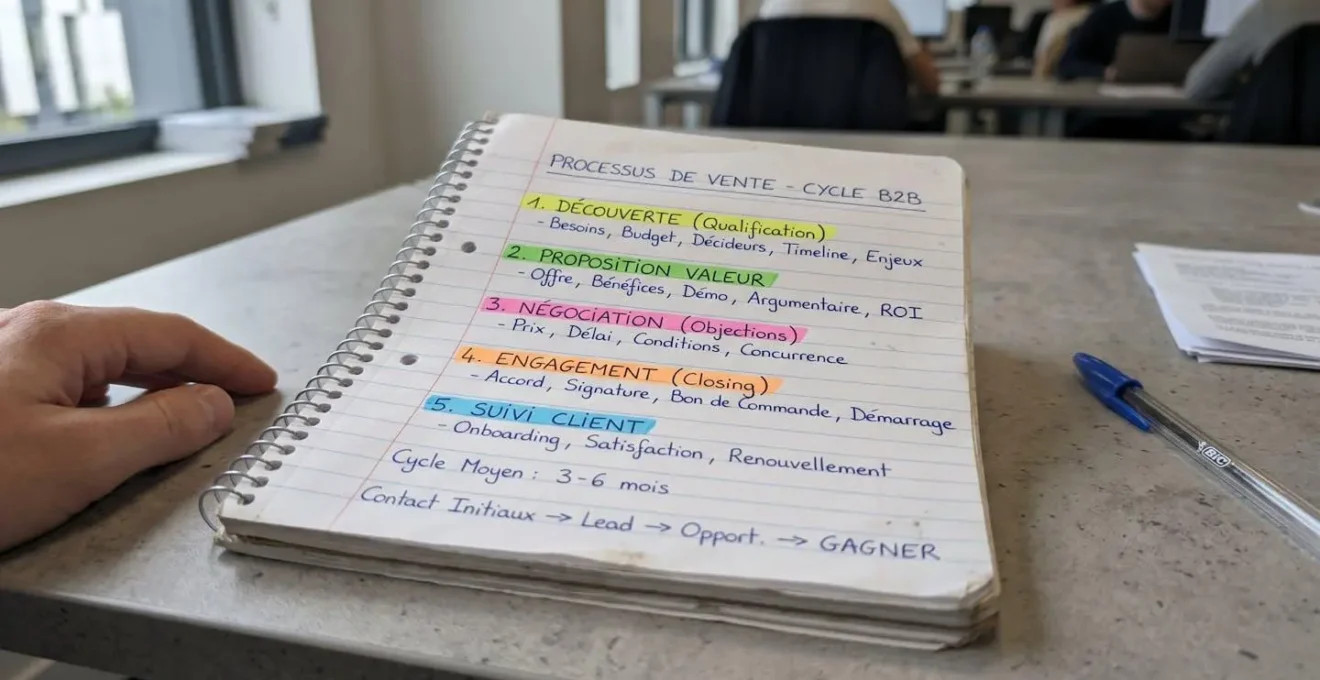 PROCESSUS DE VENTE - CYCLE B2B
1. DÉCOUVERTE (Qualification)
- Besoins, Budget, Décideurs, Timeline, Enjeux
2. PROPOSITION VALEUR
- Offre, Bénéfices, Démo, Argumentaire, ROI
3. NÉGOCIATION (Objections)
- Prix, Délai, Conditions, Concurrence
4. ENGAGEMENT (Closing)
- Accord, Signature, Bon de Commande, Démarrage
5. SUIVI CLIENT
- Onboarding, Satisfaction, Renouvellement
Cycle Moyen : 3-6 mois
Contact Initiaux → Lead → Opport. → GAGNER
BIC